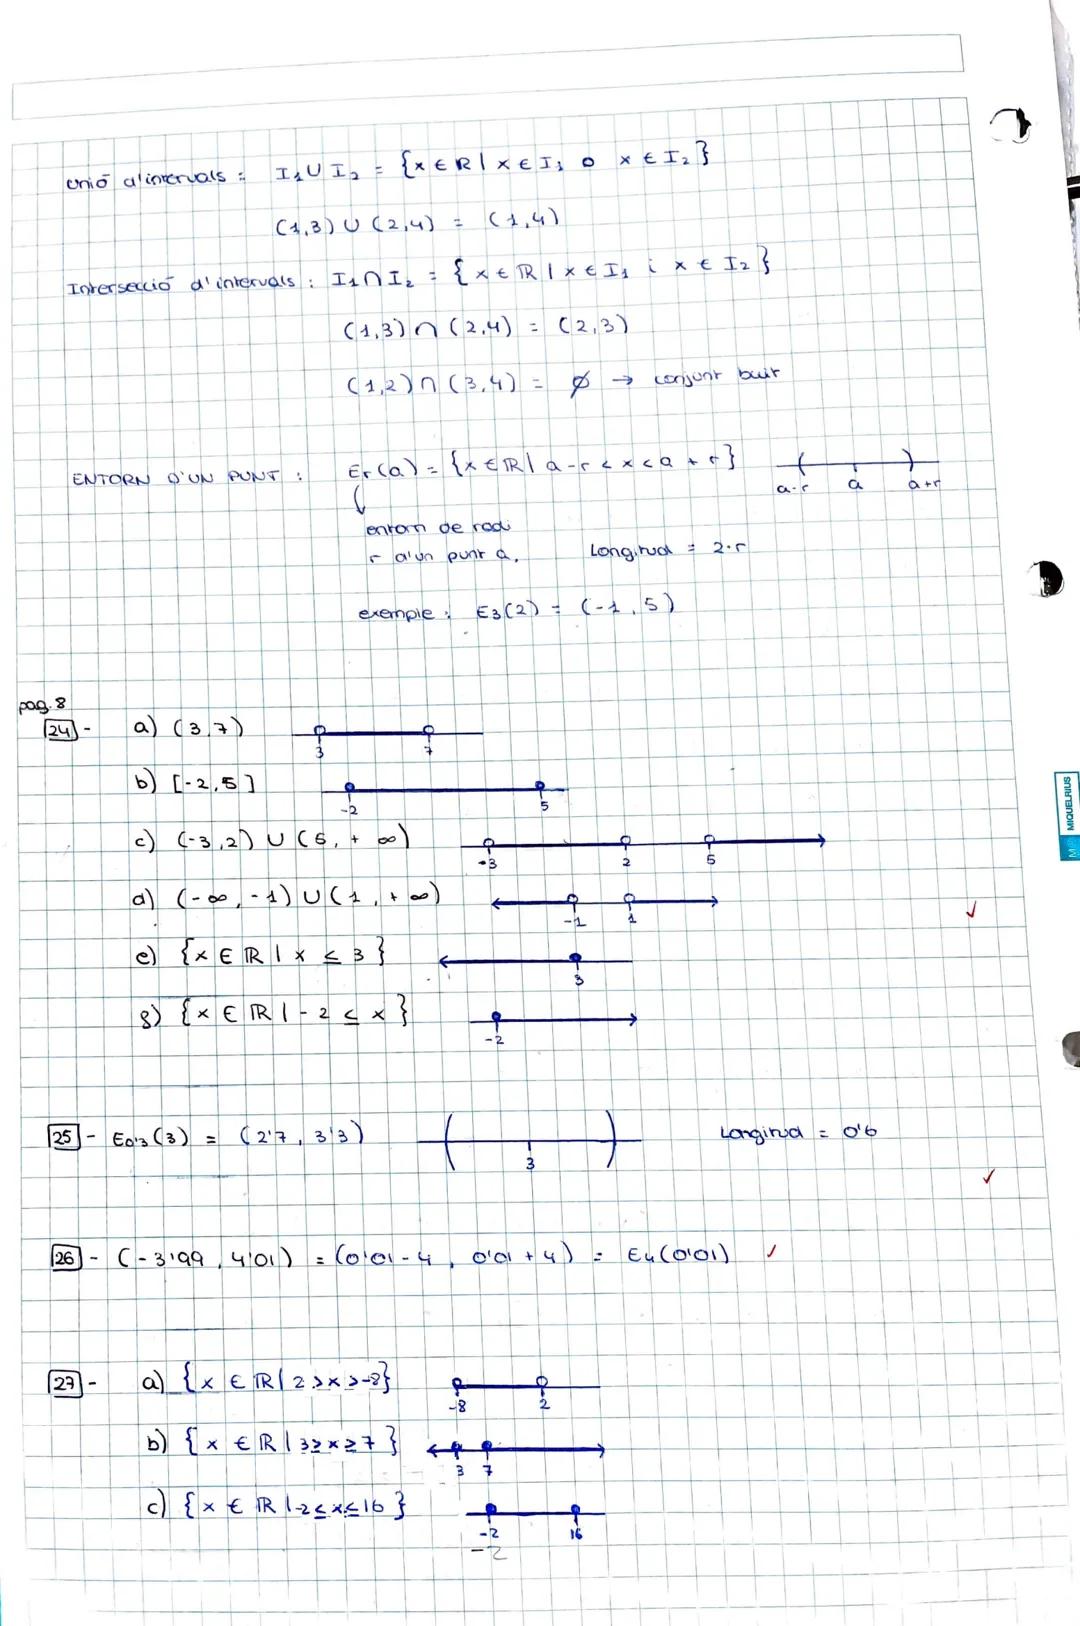 Unió d'intervals : I₁ ∪ I₂ = {x ∈ ℝ | x ∈ I₁ o x ∈ I₂}
(1,3) ∪ (2,4) = (1,4)
Intersecció d'intervals : I₁ ∩ I₂ = {x ∈ ℝ | x ∈ I₁ i x ∈ I₂}
(1,3) ∩ (2,4) = (2,3)
(1,2) ∩ (3,4) = ∅ → conjunt buit
ENTORN D'UN PUNT : Er(a) = {x ∈ ℝ | a-r < x < a + r}
a-r a a+r
entorn de radi
r d'un punt a. Longitud = 2·r
exemple : E₃(2) = (-1, 5)
pag. 8
24 - a) (3,7)
3 7
b) [-2,5]
-2 5
c) (-3,2) ∪ (5, + ∞)
-3 2 5
d) (-∞, -1) ∪ (1, + ∞)
-1 1
e) {x ∈ ℝ | x ≤ 3}
3
g) {x ∈ ℝ | -2 ≤ x}
-2
25 - E₀'₃(3) = (2'7, 3'3) Longitud = 0'6
3
26 - (-3'99, 4'01) = (0'01-4, 0'01+4) = E₄(0'01)
27 - a) {x ∈ ℝ | 2 > x > -8}
-8 2
b) {x ∈ ℝ | 3 ≥ x ≥ 7}
3 7
c) {x ∈ ℝ | -2 ≤ x ≤ 16}
-2 16
-2
MIQUELRIUS